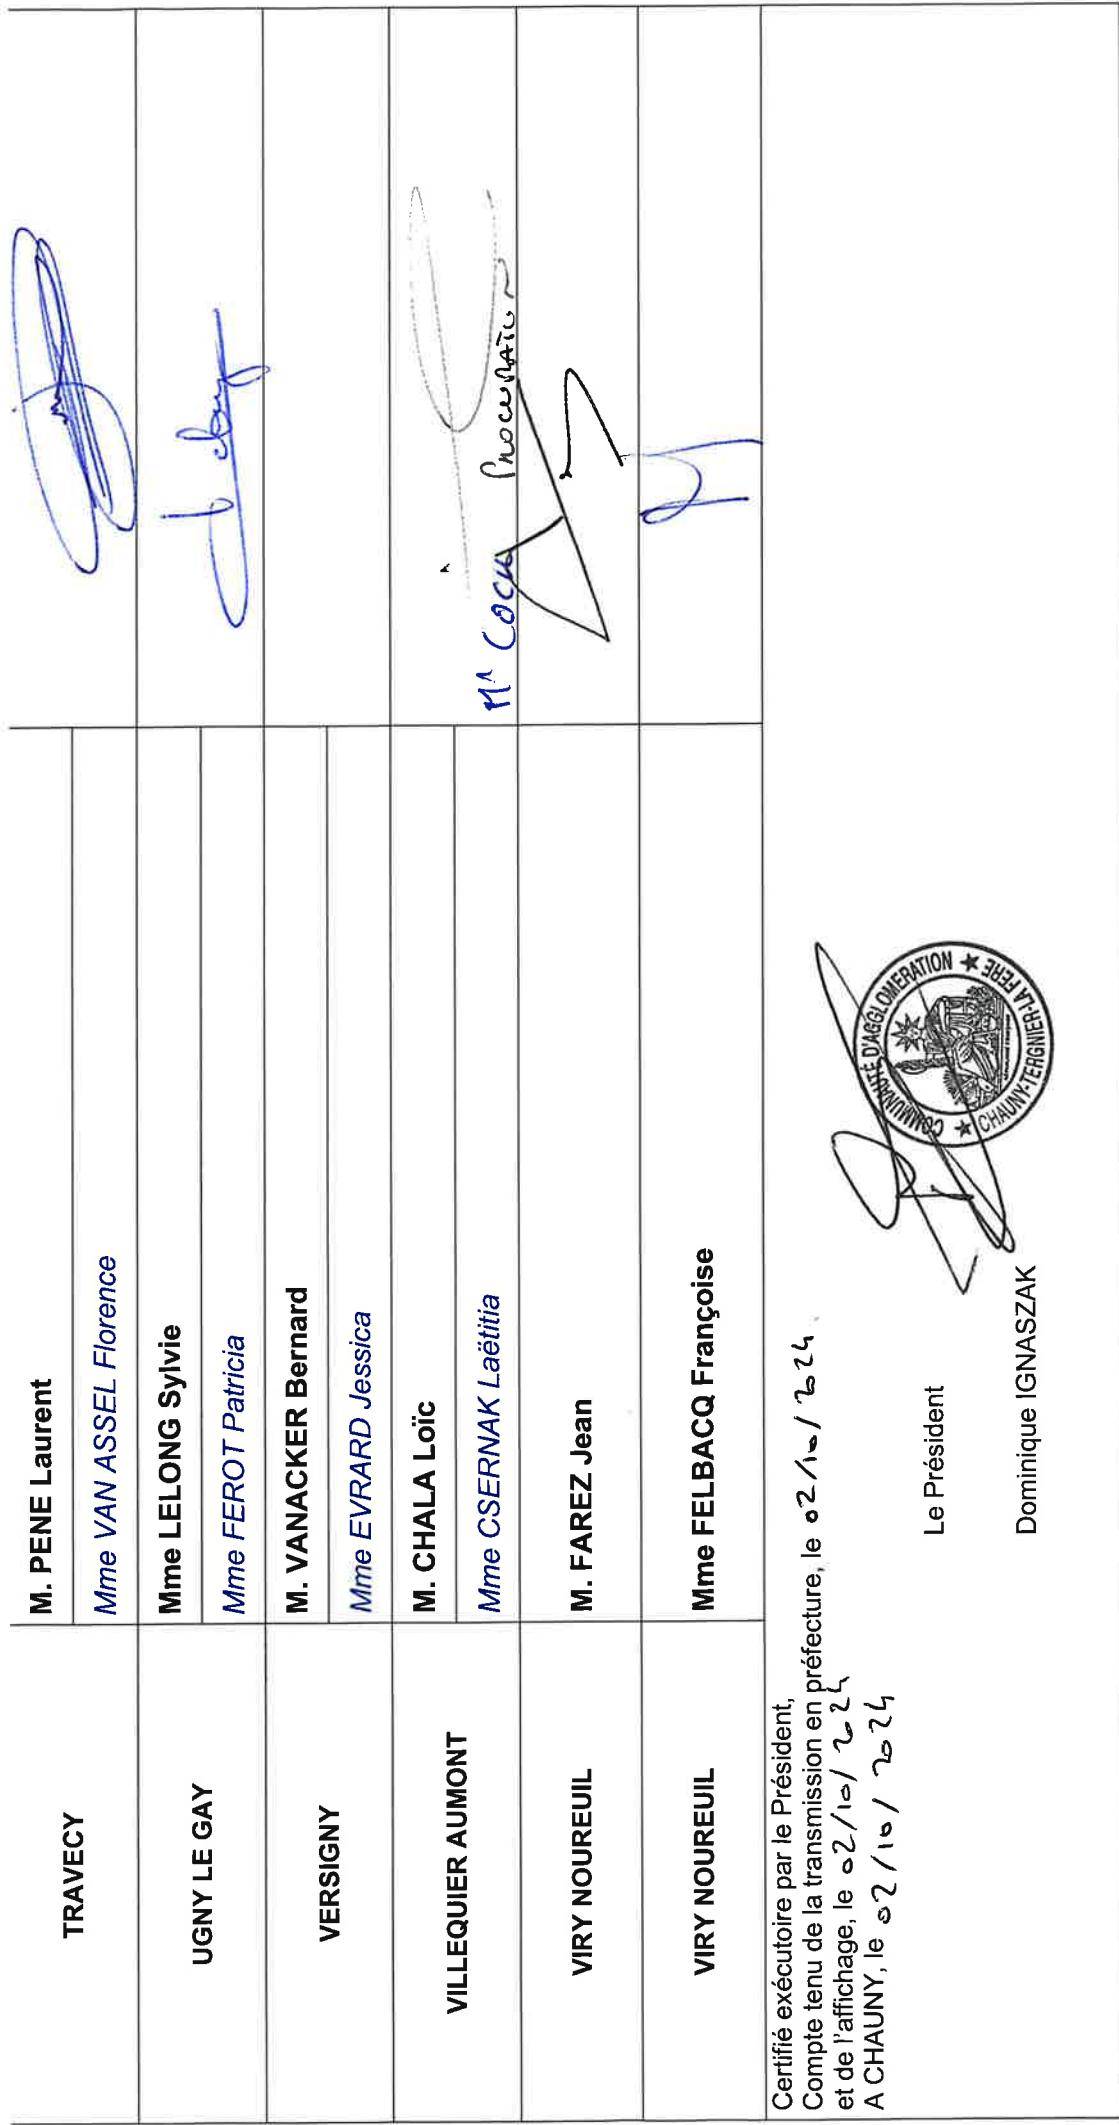 TRAVECY
M. PENE Laurent
Mme VAN ASSEL Florence
UGNY LE GAY
Mme LELONG Sylvie
Mme FEROT Patricia
VERSIGNY
M. VANACKER Bernard
Mme EVRARD Jessica
VILLEQUIER AUMONT
M. CHALA Loïc
Mme CSERNAK Laëtitia
Procuration
VIRY NOUREUIL
M. FAREZ Jean
VIRY NOUREUIL
Mme FELBACQ Françoise
Certifié exécutoire par le Président,
Compte tenu de la transmission en préfecture, le 02/10/2024
et de l'affichage, le 02/10/2024
A CHAUNY, le 02/10/2024
Le Président
COMMUNAUTÉ D'AGGLOMERATION
CHAUNY-TERGNIER-LA FERE
Dominique IGNASZAK